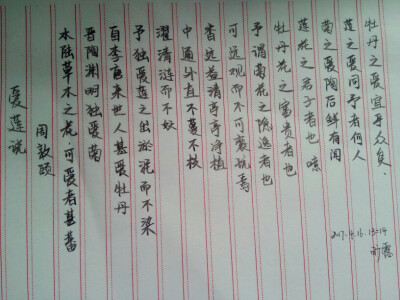 爱莲说
周敦颐
水陆草木之花，可爱者甚蕃
晋陶渊明独爱菊
自李唐来世人甚爱牡丹
予独爱莲之出淤泥而不染
濯清涟而不妖
中通外直不蔓不枝
香远益清亭亭净植
可远观而不可亵玩焉
予谓菊花之隐逸者也
牡丹花之富贵者也
莲花之君子者也 噫
菊之爱陶后鲜有闻
莲之爱同予者何人
牡丹之爱宜乎众矣.
2017.4.16.13:14